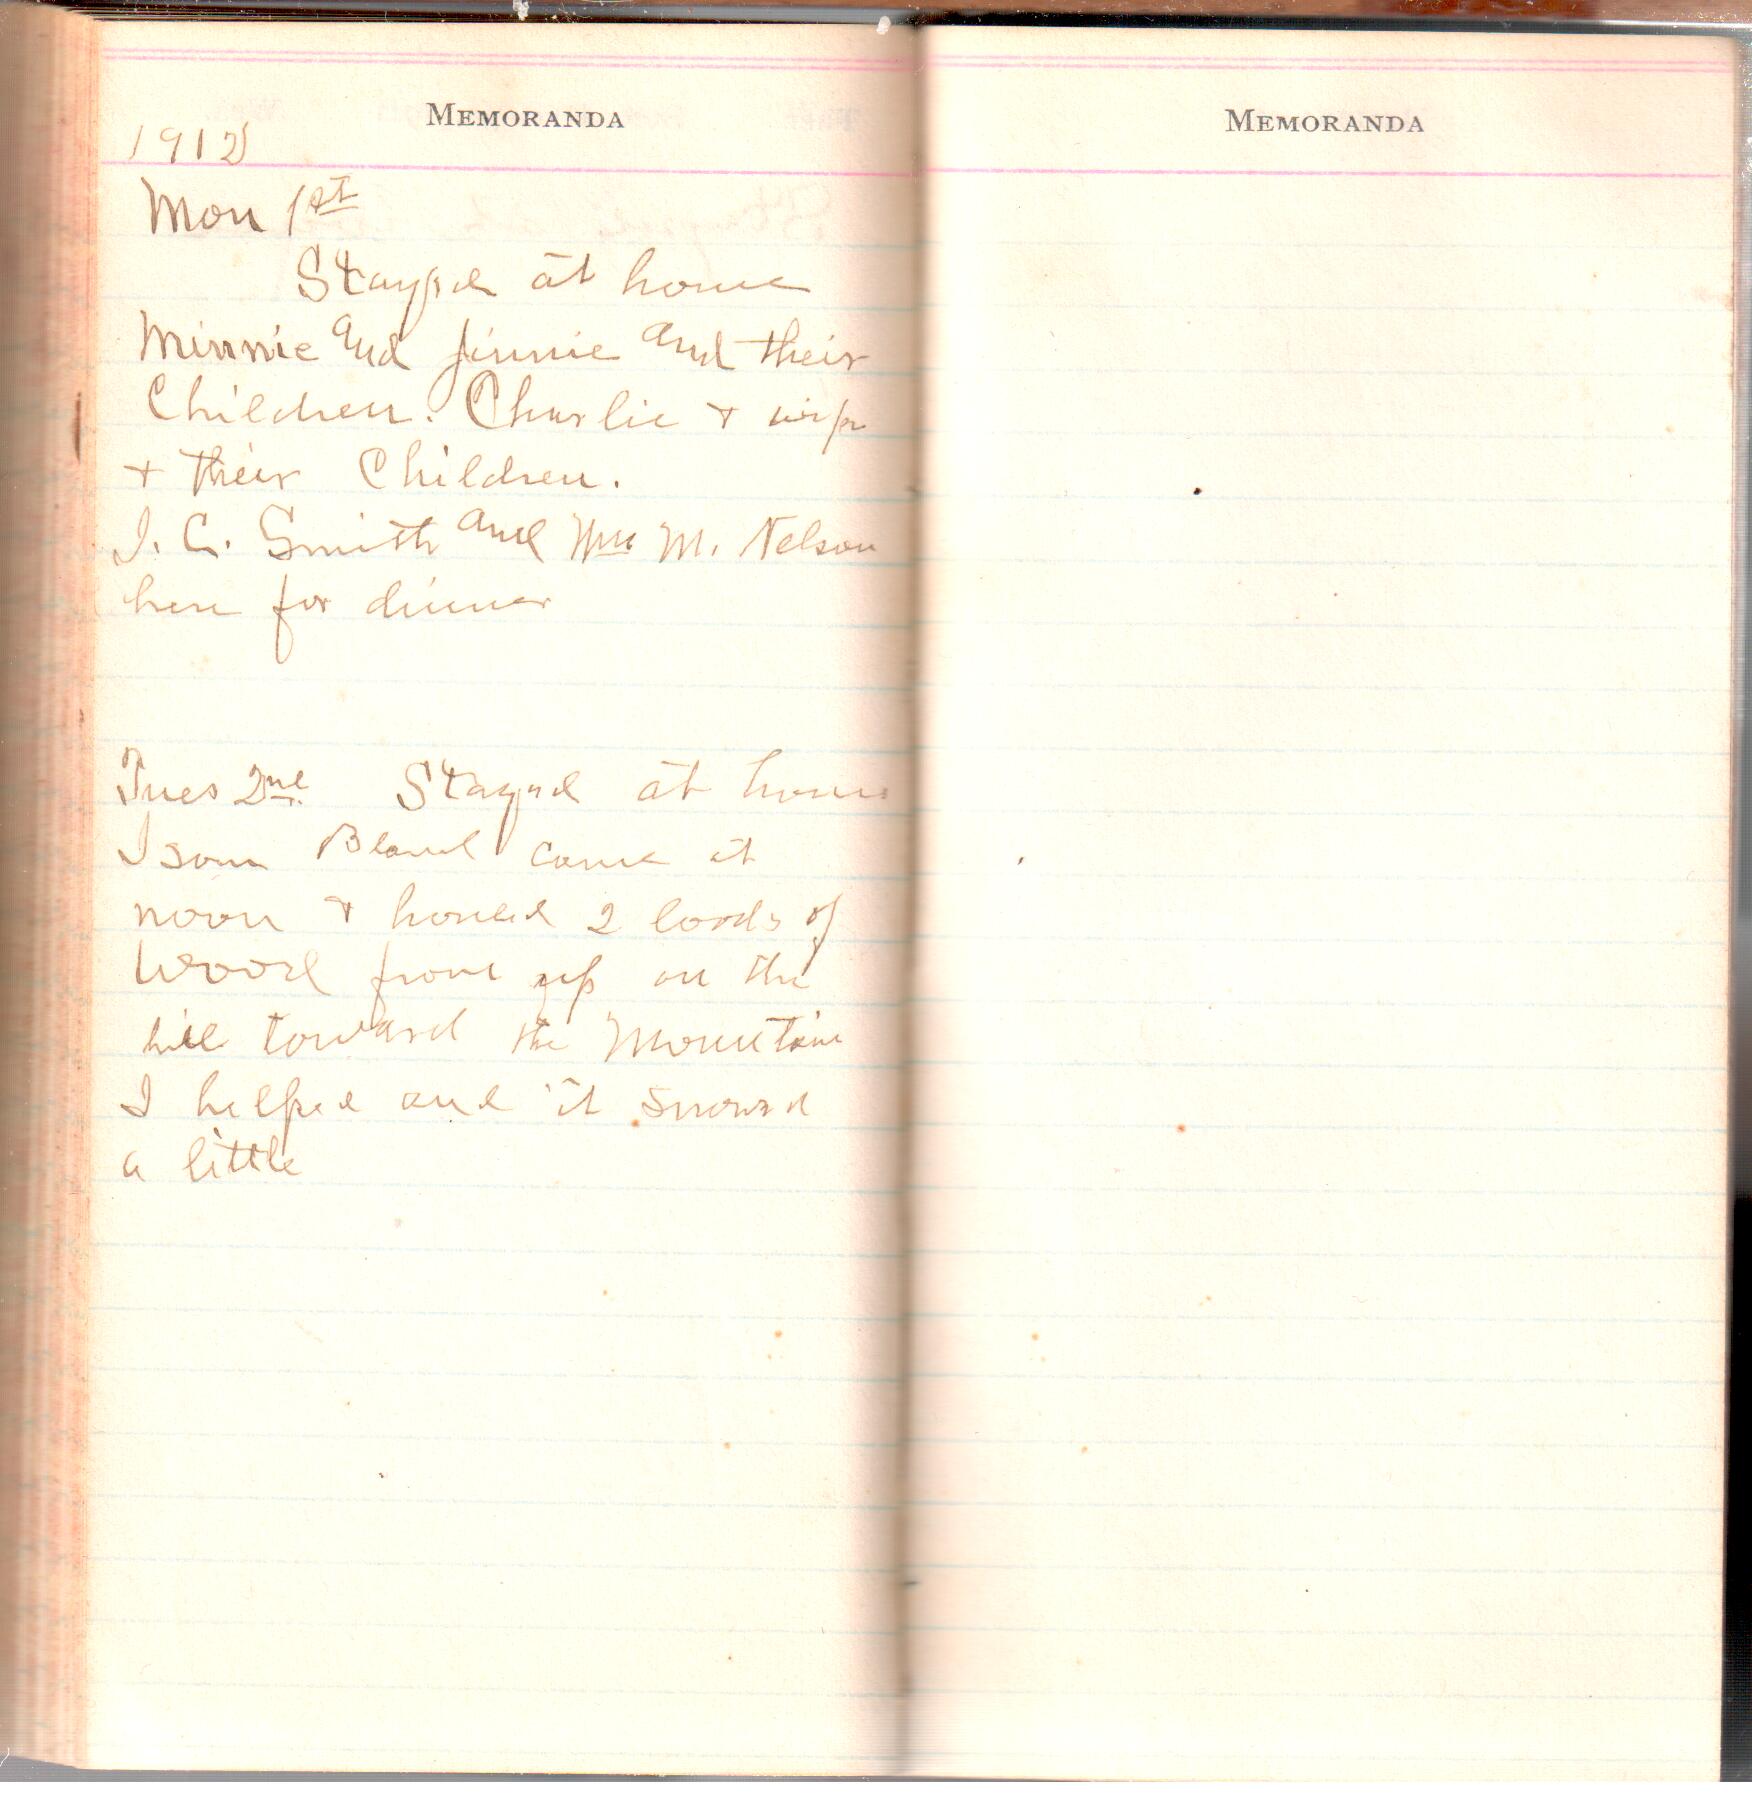 MEMORANDA
1912
Mon 1st
Stayed at home
Minnie and Jinnie and their
Children. Charlie + wife
+ their Children.
J. C. Smith and Mrs M. Nelson
here for dinner
Tues 2nd Stayed at home
Isom Bland came at
noon + houled 2 loods of
wood from up on the
hill toward the Mountain
I helped and it snowed
a little
MEMORANDA